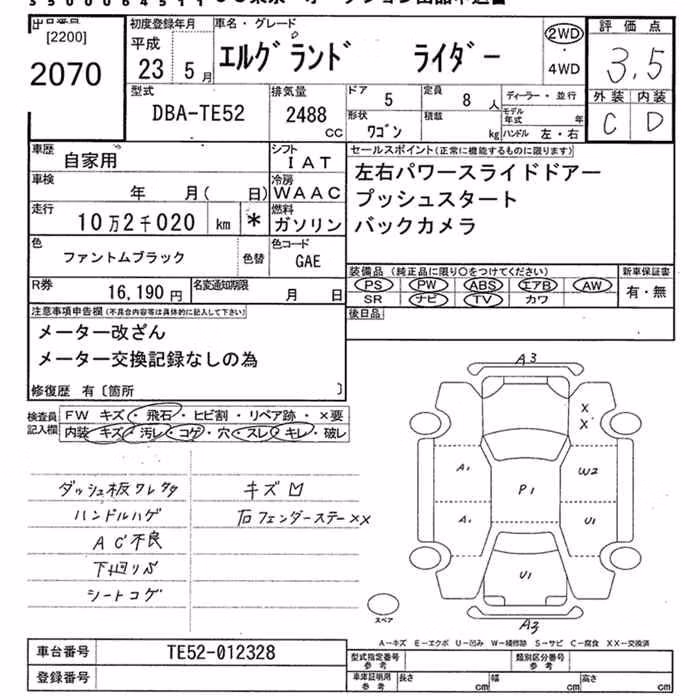 出品番号
[2200]
2070
初度登録年月
平成
23 5月
車名・グレード
エルグランド ライダー
2WD
4WD
評価点
3.5
外装 内装
C D
型式
DBA-TE52
排気量
2488 CC
ドア 5
定員 8 人
ディーラー・並行
形状 ワゴン
積載 kg
モデル年式 年
ハンドル 左・右
車歴 自家用
シフト IAT
車検 年 月( 日)
冷房 WAAC
走行 10万2千020 km *
燃料 ガソリン
色 ファントムブラック 色替
色コード GAE
R券 16,190 円
名変通知期限 月 日
セールスポイント(正常に機能するものに限ります)
左右パワースライドドアー
プッシュスタート
バックカメラ
装備品 (純正品に限り○をつけてください)
PS PW ABS エアB AW
SR ナビ TV カワ
新車保証書
有・無
後日品
注意事項申告欄(不具合内容等は具体的に記入して下さい)
メーター改ざん
メーター交換記録なしの為
修復歴 有〔箇所 〕
検査員記入欄
FW キズ・飛石・ヒビ割・リペア跡・×要
内装 キズ・汚レ・コゲ・穴・スレ・キレ・破レ
ダッシュ板ワレクタ
ハンドルハゲ
AC不良
下廻りS
シートコゲ
キズ凹
右フェンダーステー××
A3
X
X
A1
W2
P1
A1
U1
U1
A3
スペア
A−キズ E−エクボ U−凹み W−補修跡 S−サビ C−腐食 XX−交換済
車台番号 TE52-012328
登録番号
型式指定番号 参考
類別区分番号 参考
車庫証明用 参考
長さ cm
幅 cm
高さ cm